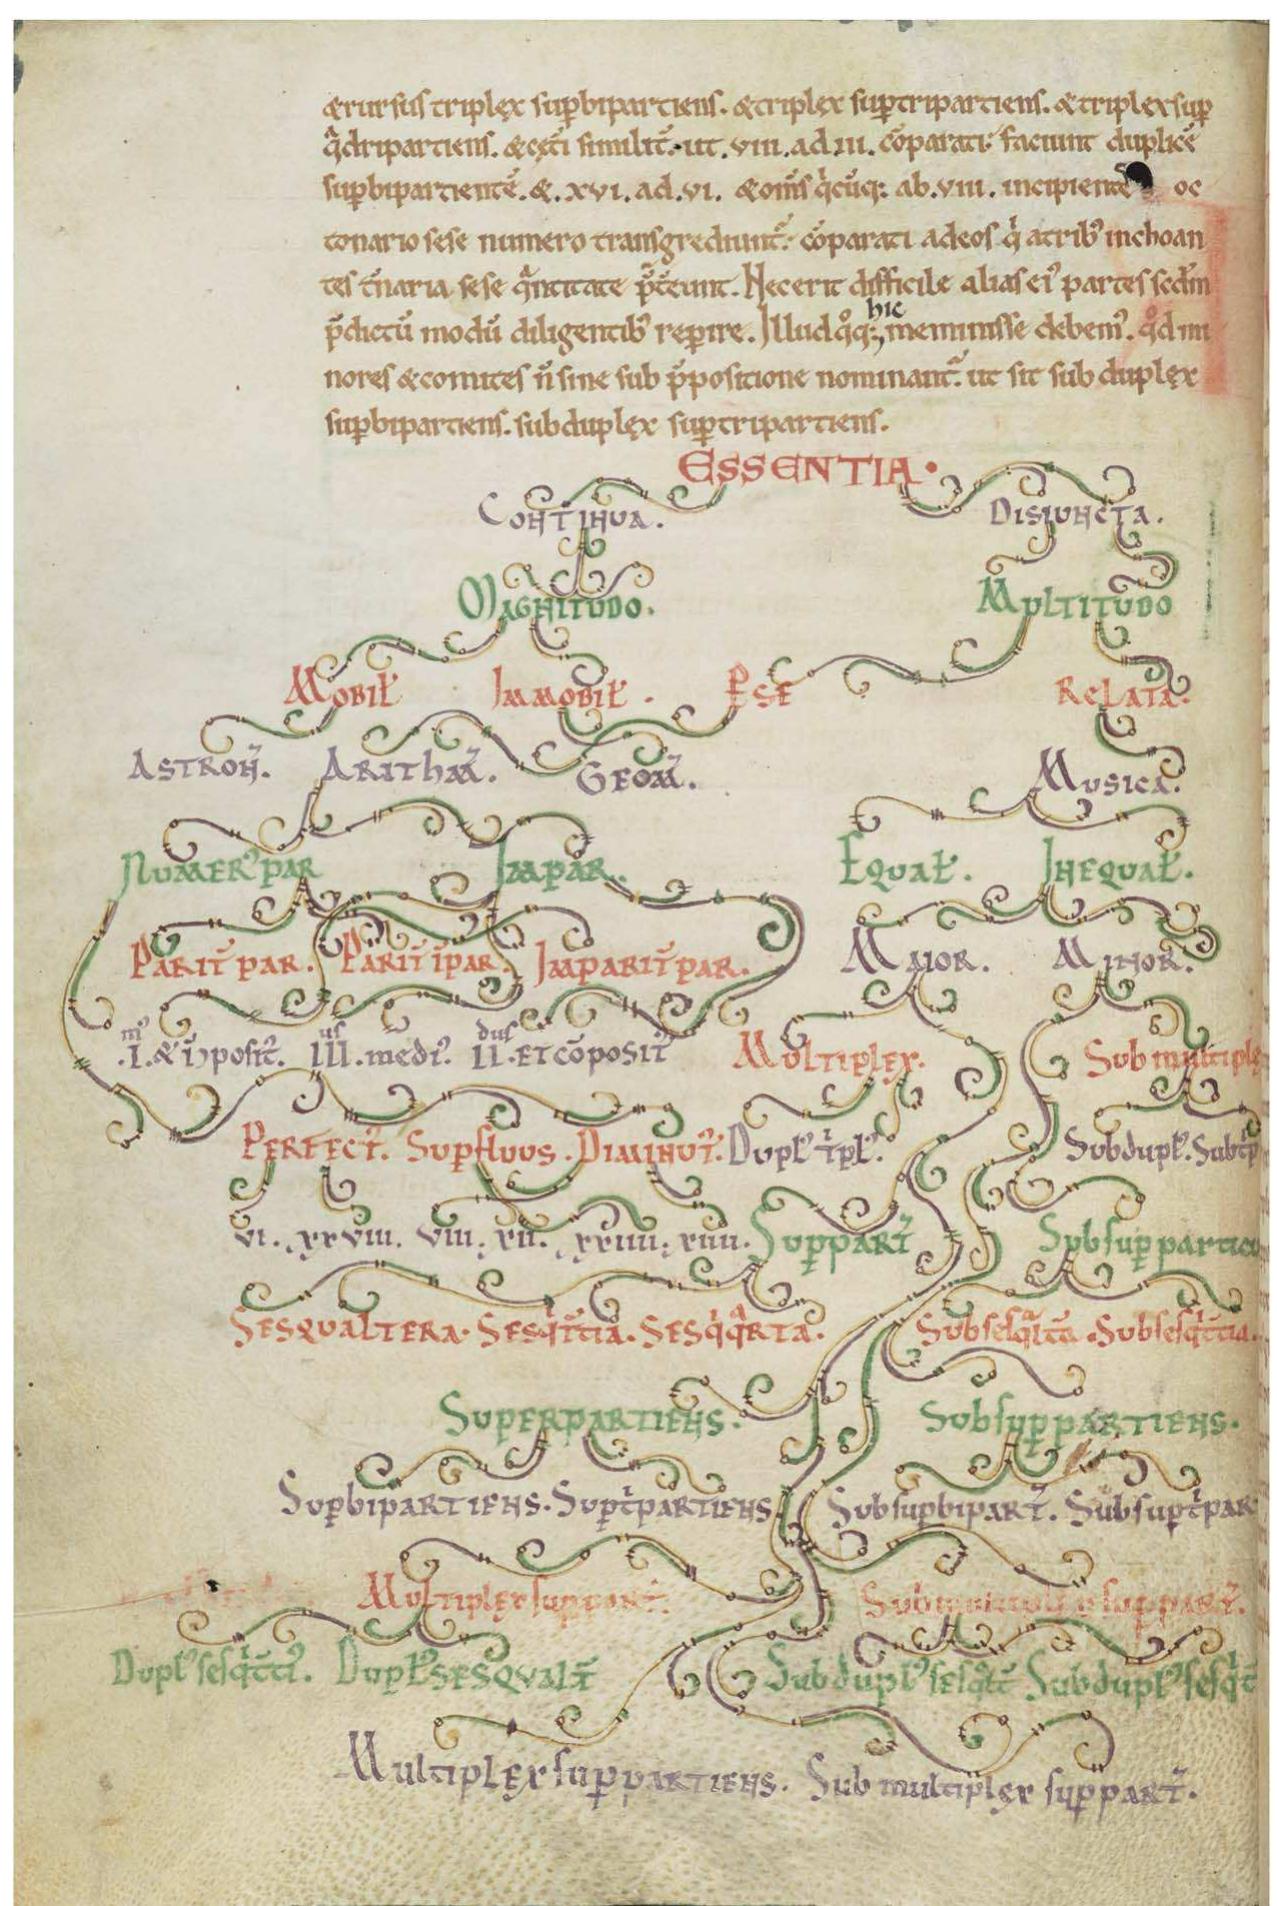 &rursus triplex sup̄bipartiens. &triplex sup̄tripartiens. &triplex sup̄
q̄dripartiens. &cęt̄i similit̄. ut .viii. ad .iii. cōparati faciunt duplicē
sup̄bipartientē. &. xvi. ad. vi. &om̄s q̄cūq; ab. viii. incipiente oc
tonario sese numero transgrediunt̄. cōparati adeos q̓ atrib᾽ inchoan
tes t̄naria sese q̄ntitate p̄t̄eunt. Nec erit difficile alias ei᾽ partes scd̄m
p̄dictū modū diligentib᾽ rep̄ire. Illud q̊q; hic meminisse debem᾽. q̊d mi
nores &comites n̄ sine sub p̄positione nominant̄. ut sit sub duplex
sup̄bipartiens. subduplex sup̄tripartiens.
ESSENTIA.
CONTINUA. DISIUNCTA.
MAGNITUDO. MULTITUDO
MOBIL̄ IMMOBIL̄. P̄ SE RELATA.
ASTRON̄. ARITHM̄. GEOM̄. MUSICA.
NUMER᾽ PAR IMPAR. EQUAL̄. INEQUAL̄.
PARIT̄ PAR. PARIT̄ IPAR. IMPARIT̄ PAR. MAIOR. MINOR.
.I.m᾽ & īnposit᾽. III.us medi᾽. II.dus ET cōposit᾽ MULTIPLEX. Submultiple
PERFECT᾽. SUP̄fluus. DIMINUT᾽. Dupl᾽ t̓pl᾽. Subdupl᾽. Subt̓p
VI. xxviii. viii. xii. xxiiii. xiiii. SUP̄PART̄ Subsup̄particu
SESQUALTERA. SESQ̓T̄CIA. SESQ̓Q̄RTA. Subsesq̄lt̄a. Subsesq̓t̄cia.
SUPERPARTIENS. SUBSUP̄PARTIENS.
SUP̄BIPARTIENS. SUP̄T̓PARTIENS Subsup̄bipart̄. Subsup̄t̓par
Multiplex sup̄part̄. Submultiplex sup̄part̄.
Dupl᾽ sesq̓t̄ci᾽. Dupl᾽ SESQUALT̄ Subdupl᾽ sesq̄lt̄ Subdupl᾽ sesq̓t̄
Multiplex sup̄partiens. Submultiplex sup̄part̄.